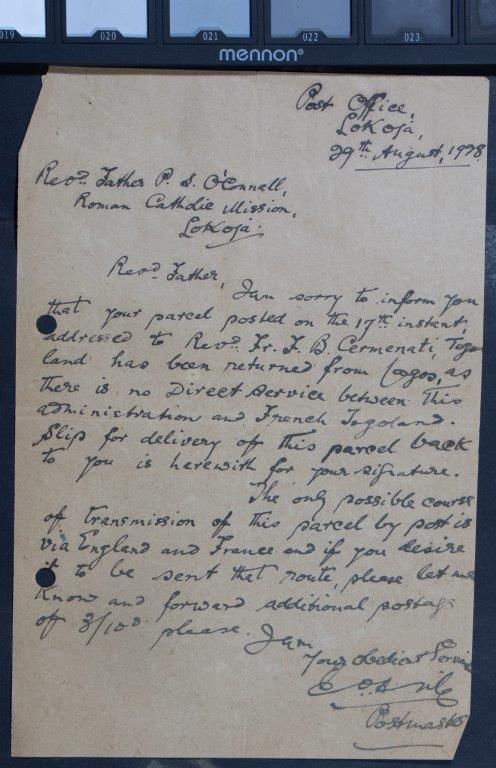 019 020 021 022 023
mennon®
Post Office,
Lokoja,
29th August, 1928
Revd. Father P. S. O'Connell,
Roman Catholic Mission,
Lokoja.
Revd. Father,
I am sorry to inform you
that your parcel posted on the 17th instant,
addressed to Revd. Fr. F. B. Cermenati, Togo
land has been returned from Lagos, as
there is no Direct service between this
administration and French Togoland.
Slip for delivery of this parcel back
to you is herewith for your signature.
The only possible course
of transmission of this parcel by post is
via England and France and if you desire
it to be sent that route, please let me
know and forward additional postage
of 3/10d please. I am
Your obedient Servant
Postmaster